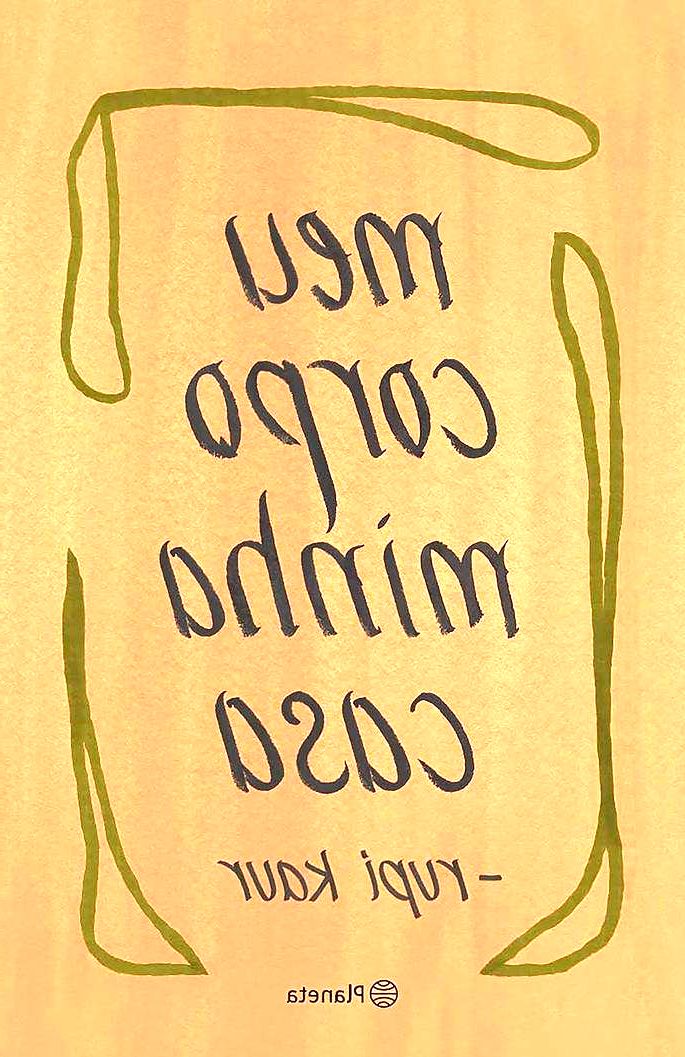 meu
corpo
minha
casa
-rupi kaur
Planeta